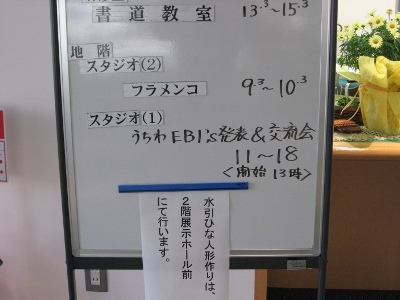 書道教室 13.³~15.³
地階
スタジオ(2)
フラメンコ 9.³~10.³
スタジオ(1)
うちわEBI's発表&交流会
11~18
<開始 13時>
水引ひな人形作りは、
2階展示ホール前
にて行います。